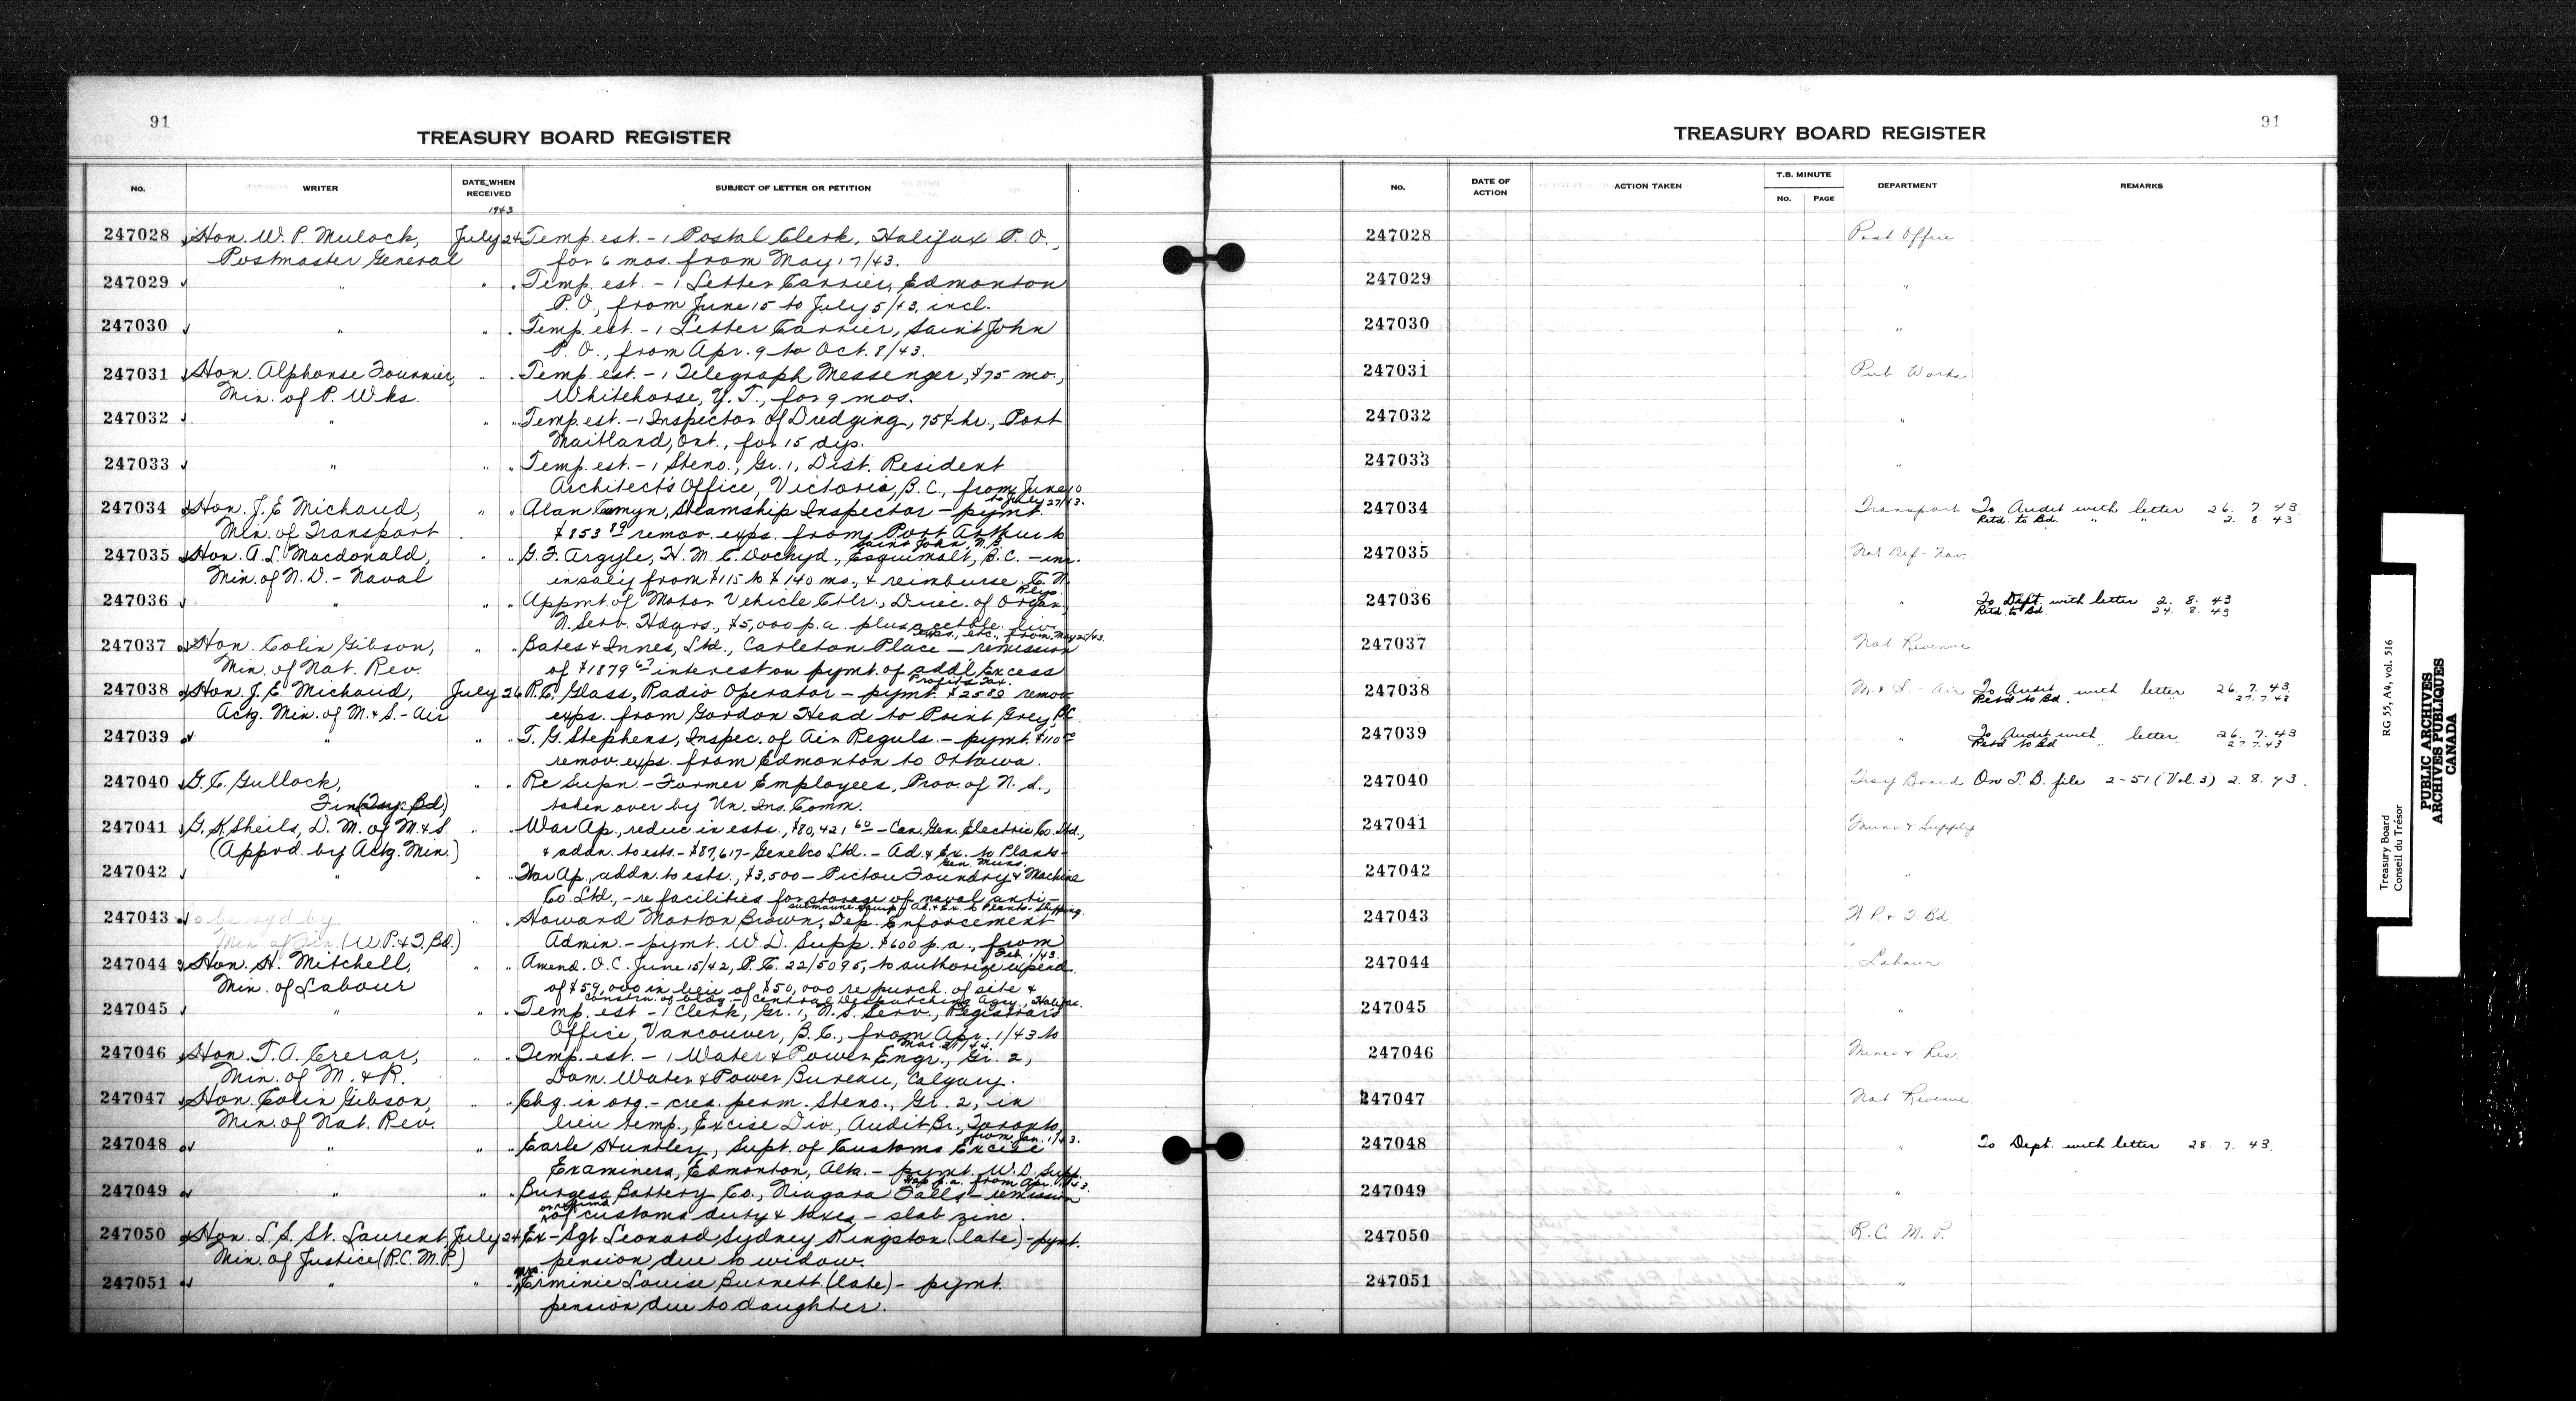 91
TREASURY BOARD REGISTER
No. WRITER DATE WHEN RECEIVED SUBJECT OF LETTER OR PETITION
1943
247028 Hon. W. P. Mulock, July 24 Temp. est. - 1 Postal Clerk, Halifax P. O.,
Postmaster General for 6 mos. from May 17/43.
247029 " " " Temp. est. - 1 Letter Carrier, Edmonton
P. O., from June 15 to July 5/43, incl.
247030 " " " Temp. est. - 1 Letter Carrier, Saint John
P. O., from Apr. 9 to Oct. 8/43.
247031 Hon. Alphonse Fournier, " " Temp. est. - 1 Telegraph Messenger, $75 mo.,
Min. of P. Wks. Whitehorse, Y. T., for 9 mos.
247032 " " " Temp. est. - 1 Inspector of Dredging, 75¢ hr., Port
Maitland, Ont., for 15 dys.
247033 " " " Temp. est. - 1 Steno., Gr. 1, Dist. Resident
Architect's Office, Victoria, B. C., from June 10
to July 27/43.
247034 Hon. J. E. Michaud, " " Alan Comyn, Steamship Inspector - pymt.
Min. of Transport $853 89 remov. exps. from Port Arthur to
Saint John, N.B.
247035 Hon. A. L. Macdonald, " " G. F. Argyle, H. M. C. Dockyd., Esquimalt, B.C. - inc.
Min. of N. D. - Naval in saly from $115 to $140 mo., & reimburse C. N.
Rlys.
247036 " " " Appmt. of Motor Vehicle Ctlr., Direc. of Organ.
N. Serv. Hdqrs., $5,000 p.a. plus acctble. liv.
exps., etc., from May 25/43.
247037 Hon. Colin Gibson, " " Bates & Innes, Ltd., Carleton Place - remission
Min. of Nat. Rev. of $1879 67 interest on pymt. of addl. Excess
Profits Tax.
247038 Hon. J. E. Michaud, July 26 R. C. Glass, Radio Operator - pymt. $25 80 remov.
Actg. Min. of M. & S. - Air exps. from Gordon Head to Point Grey, BC.
247039 " " " T. G. Stephens, Inspec. of Air Reguls. - pymt. $110
remov. exps. from Edmonton to Ottawa.
247040 G. C. Gullock, " " Re Supn. - Former Employees, Prov. of N. S.,
Fin (Tsy. Bd) taken over by Un. Ins. Comm.
247041 G. K. Sheils, D. M. of M. & S. " War Ap., reduc in ests., $80,421 60 - Can. Gen. Electric Co. Ltd.,
(Appvd. by Actg. Min.) & addn. to ests. - $87,617 - Genelco Ltd. - Ad. & Ex. to Plants -
Gen. Muns.
247042 " " War Ap., addn. to ests., $3,500 - Pictou Foundry & Machine
Co. Ltd., - re facilities for storage of naval anti-
submarine equip. - Ad. & Ex. to Plants - Shipping.
247043 To be sgd by " Howard Morton Brown, Dep. Enforcement
Min. of Fin. (W. P. & T. Bd.) Admin. - pymt. W. D. Supp. $600 p. a., from
Feb. 1/43.
247044 Hon. H. Mitchell, " " Amend. O. C. June 15/42, P. C. 22/5095, to authorize expend.
Min. of Labour of $59,000 in lieu of $50,000 re purch. of site &
construc. of bldg. - Central Despatching Agcy., Halifax.
247045 " " " Temp. est - 1 Clerk, Gr. 1, N. S. Serv., Registrar's
Office, Vancouver, B. C., from Apr. 1/43 to
Mar. 31/44.
247046 Hon. T. A. Crerar, " " Temp. est. - 1 Water & Power Engr., Gr. 2,
Min. of M. & R. Dom. Water & Power Bureau, Calgary.
247047 Hon. Colin Gibson, " " Chg. in org. - crea. perm. Steno., Gr. 2, in
Min. of Nat. Rev. lieu temp., Excise Div., Audit Br., Toronto,
from Jan. 1/43.
247048 " " " Earle Huntley, Supt. of Customs Excise
Examiners, Edmonton, Alta. - pymt. W. D. Supp.
p.a. from Apr. 1/43.
247049 " " " Burgess Battery Co., Niagara Falls - remission
of customs duty & taxes - slab zinc.
247050 Hon. L. S. St. Laurent, July 24 Ex-Sgt. Leonard Sydney Kingston (late) - pymt.
Min. of Justice (R.C.M.P.) pension due to widow.
247051 " " " Mrs. Erminie Louise Burnett (late) - pymt.
pension due to daughter.
91
TREASURY BOARD REGISTER
No. DATE OF ACTION ACTION TAKEN T.B. MINUTE No. PAGE DEPARTMENT REMARKS
247028 Post Office
247029 "
247030 "
247031 Pub Works
247032 "
247033 "
247034 Transport To Audit with letter 26. 7. 43.
Retd. to Bd. " " 2. 8. 43
247035 Nat Def - Nav.
247036 " To Dept. with letter 2. 8. 43
Retd. to Bd. 24. 8. 43
247037 Nat Revenue
247038 M. & S - Air To Audit with letter 26. 7. 43.
Retd to Bd. " " 27. 7. 43
247039 " To Audit with letter 26. 7. 43
Retd to Bd " 27. 7. 43
247040 Tsey Board On T. B. file 2-51 (Vol. 3) 2. 8. 43.
247041 Muns & Supply
247042 "
247043 W P. & T. Bd.
247044 Labour
247045 "
247046 Mines & Res
247047 Nat Revenue
247048 " To Dept. with letter 28. 7. 43.
247049 "
247050 R. C. M. P.
247051 "
Treasury Board RG 55, A4, vol. 516
Conseil du Trésor
PUBLIC ARCHIVES
ARCHIVES PUBLIQUES
CANADA